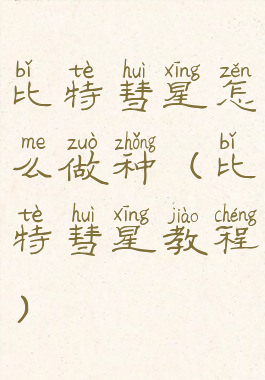 bǐ tè huì xīng zěn
比特彗星怎
me zuò zhǒng bǐ
么做种（比
tè huì xīng jiào chéng
特彗星教程
）